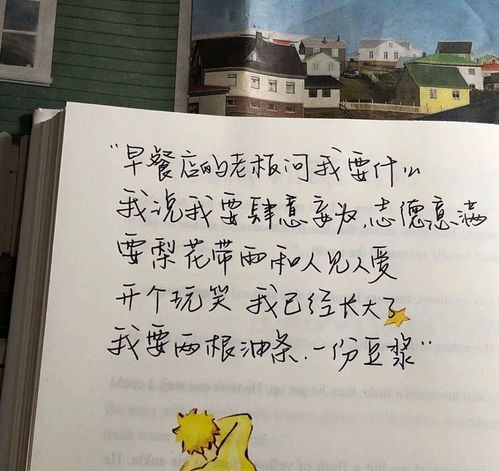 “早餐店的老板问我要什么
我说我要肆意妄为,志德意满
要梨花带雨和人见人爱
开个玩笑 我已经长大了
我要两根油条、一份豆浆”